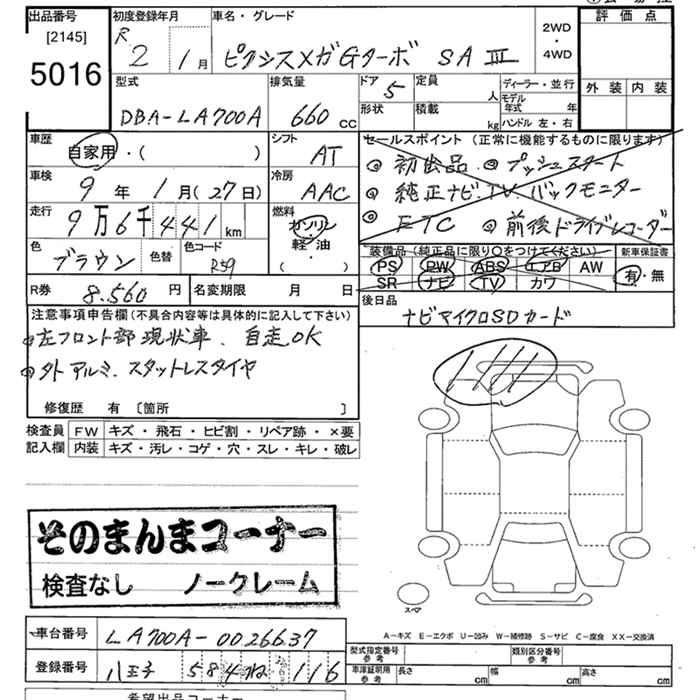 出品番号
[2145]
5016
初度登録年月
R 2 1月
車名・グレード
ピクシスメガGターボ SAⅢ
2WD
・
4WD
評価点
外装 内装
型式
DBA-LA700A
排気量
660 CC
ドア 5
形状
定員 人
積載 kg
ディーラー・並行
モデル年式 年
ハンドル 左・右
車歴
自家用・( )
シフト
AT
車検
9年 1月(27日)
冷房
AAC
走行
9万6千441km
燃料
ガソリン
軽油・
( )
色
ブラウン
色替
色コード
R59
R券 8,560円
名変期限 月 日
セールスポイント (正常に機能するものに限ります)
◎初出品 ◎プッシュスタート
◎純正ナビ.TV.バックモニター
◎ETC ◎前後ドライブレコーダー
装備品(純正品に限り○をつけてください)
PS PW ABS エアB AW
SR ナビ TV カワ
新車保証書
有・無
後日品
ナビマイクロSDカード
注意事項申告欄(不具合内容等は具体的に記入して下さい)
◎左フロント部現状車、自走OK
◎外アルミ.スタットレスタイヤ
修復歴 有 [箇所 ]
検査員
記入欄
FW キズ・飛石・ヒビ割・リペア跡・×要
内装 キズ・汚レ・コゲ・穴・スレ・キレ・破レ
そのまんまコーナー
検査なし ノークレーム
スペア
A-キズ E-エクボ U-凹み W-補修跡 S-サビ C-腐食 XX-交換済
車台番号 LA700A-0026637
登録番号 八王子 584 ね 116
型式指定番号
参考
類別区分番号
参考
車庫証明用
参考
長さ cm 幅 cm 高さ cm
希望出品コーナー